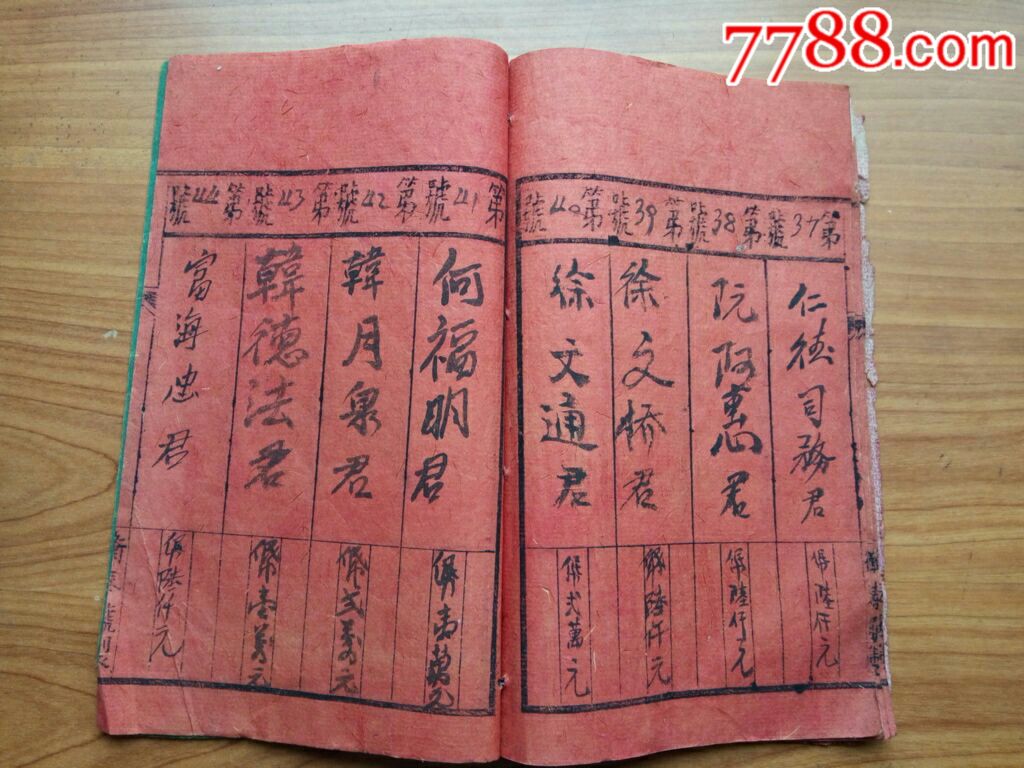 7788.com
第37號
仁德司務君
陸仟元
第38號
阮阿惠君
陸仟元
第39號
徐文桥君
陸仟元
第40號
徐文通君
弍萬元
第41號
何福明君
壹萬元
第42號
韓月泉君
弍萬元
第43號
韓德法君
壹萬元
第44號
富海忠君
陸仟元